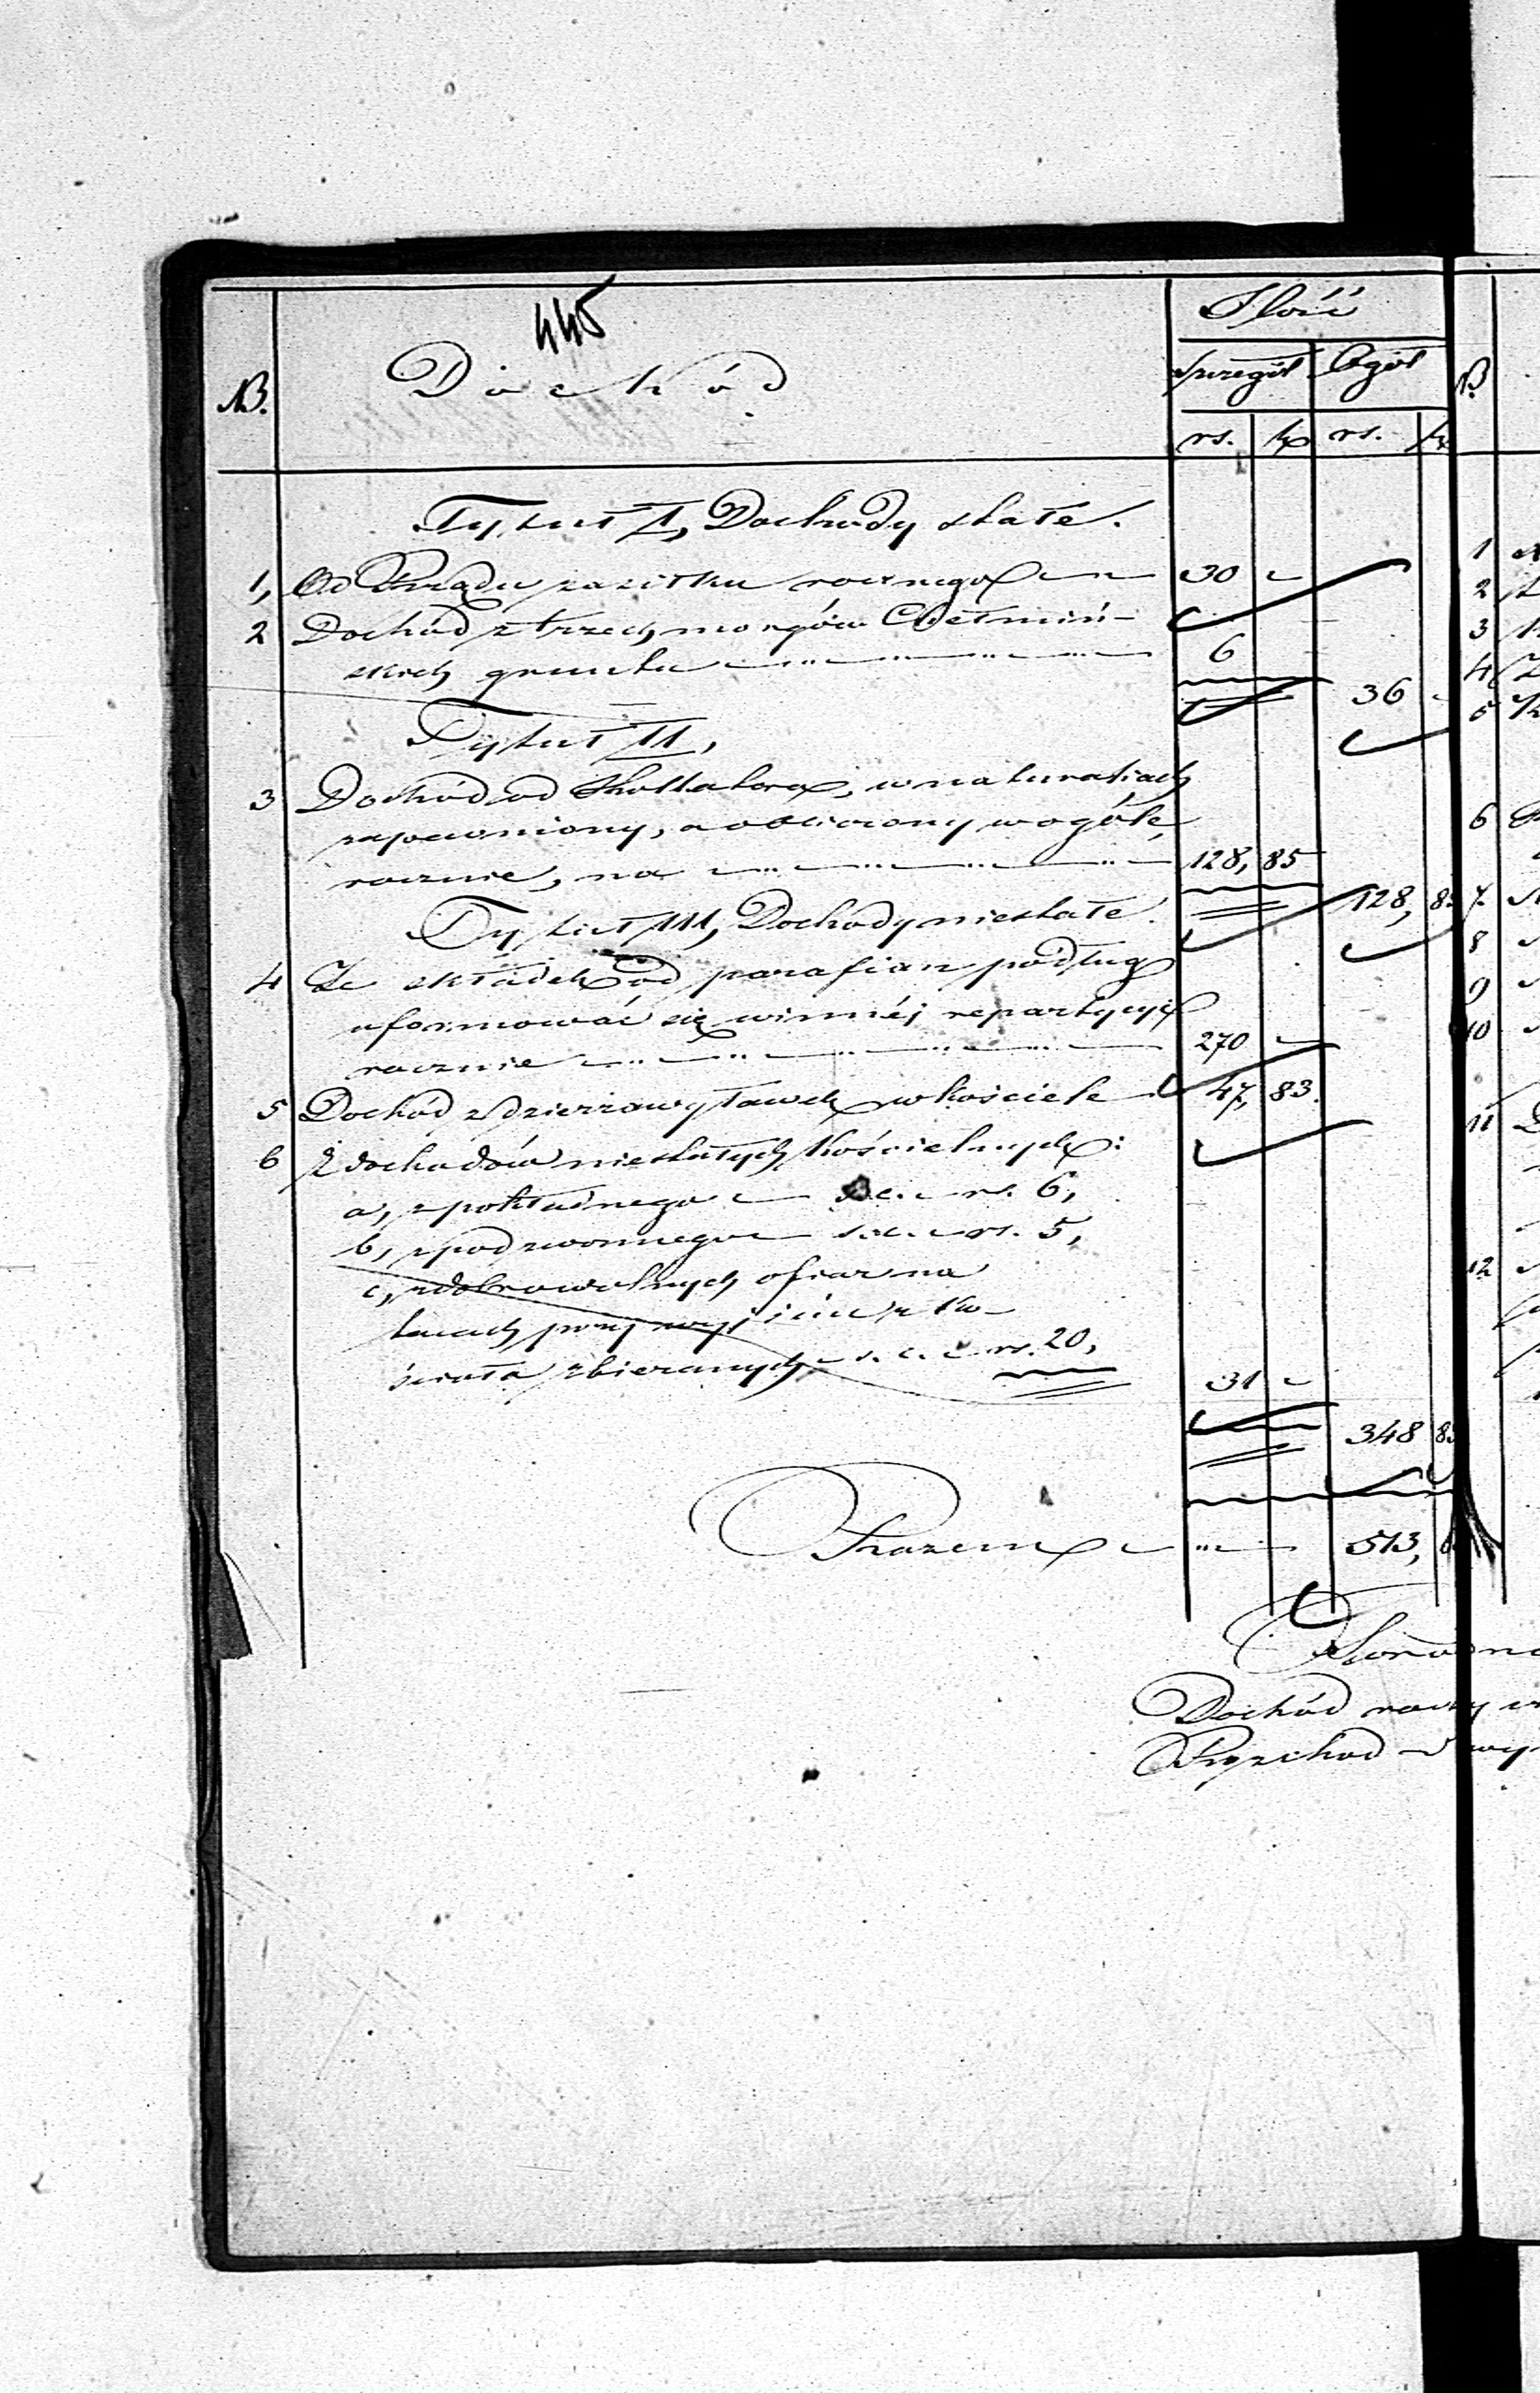 445
Ilość
№. Dochód szczegół ogół
rs. kp rs. k
Tytuł I, Dochody stałe.
1, Od Rządu zasiłku rocznego 30 -
2 Dochód z trzech morgów Chełmiń-
skich gruntu 6
36 -
Tytuł II,
3 Dochód od Kollatora, w naturaliach
zapewniony, a obliczony w ogóle,
rocznie, na 128, 85
128, 8
Tytuł III, Dochody niestałe.
4 Ze składek od parafian podług
uformować się winnéj repartycyi
rocznie 270 -
5 Dochód z dzierżawy ławek w kościele 47, 83.
6 Z dochodów niestałych kościelnych:
a, z pokładnego rs. 6,
b, z podzwonnego s. c. rs. 5,
c, z dobrowolnych ofiar na
tacach przy wyjściu z ko-
ścioła zbieranych s. c. rs. 20,
31 -
348 8
Razem 513,
Dochód
Rozchod